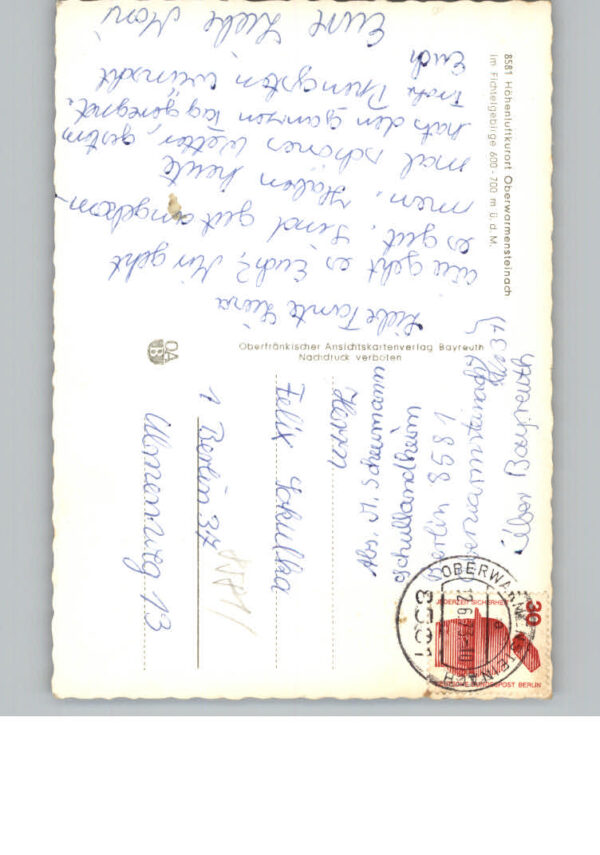 8581 Höhenluftkurort Oberwarmensteinach
im Fichtelgebirge 600-700 m ü. d. M.
Liebe Tante
wie geht es Euch? Mir geht
es gut. Sind gut angekom-
men. Haben heute
mal schönes Wetter, gestern
hat's den ganzen Tag geregnet.
Frohe Pfingsten wünscht
Euch
Eure Liebe
Oberfränkischer Ansichtskartenverlag Bayreuth
Nachdruck verboten
OA
Abs. M. Scheumann
Schullandheim
Berlin 8581
Oberwarmensteinach
Über Bayreuth
30
JEDERZEIT SICHERHEIT
DEUTSCHE BUNDESPOST BERLIN
OBERWARMENSTEINACH
8581
Herrn
Felix Sokulka
1 Berlin 37
Ulmenweg 13